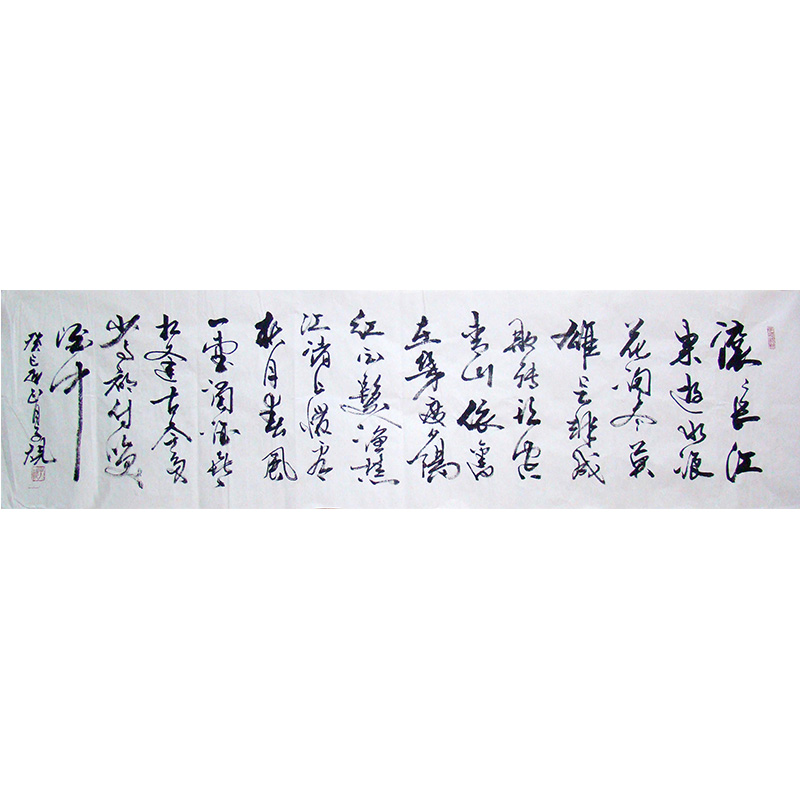 滚〻长江
東逝水浪
花淘尽英
雄是非成
败转头空
青山依舊
在幾度夕陽
红白髮渔樵
江渚上惯看
秋月春風
一壶濁酒喜
相逢古今多
少事都付笑
谈中
癸巳年正月文